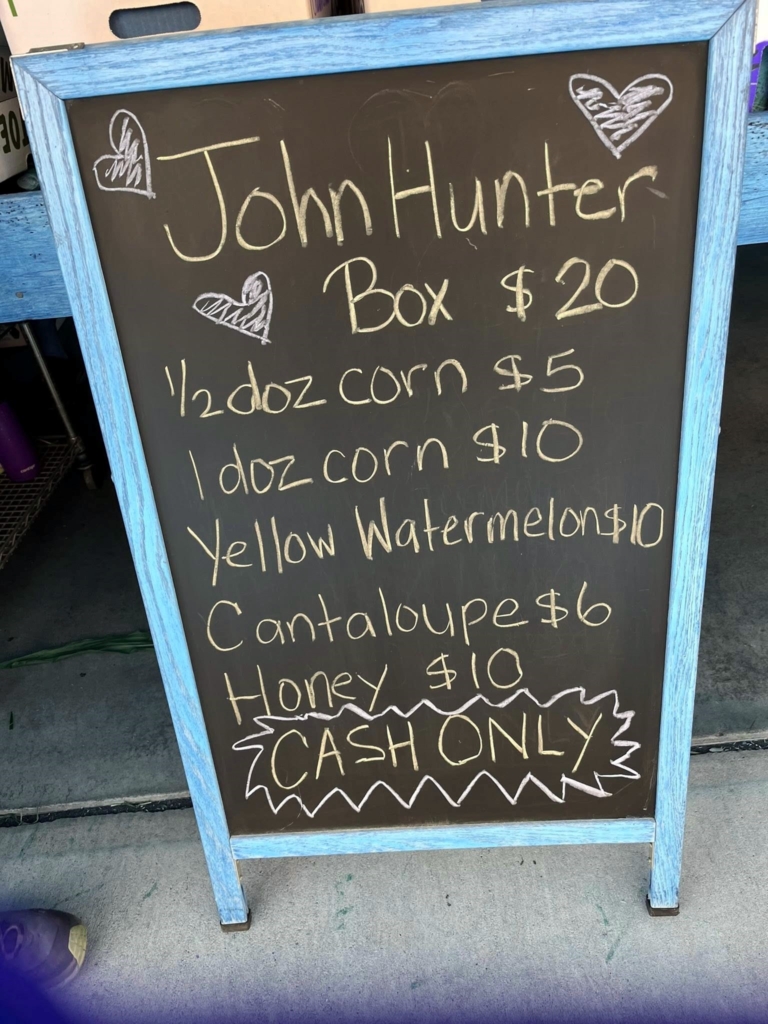 John Hunter
Box $20
1/2 doz corn $5
1 doz corn $10
Yellow Watermelon $10
Cantaloupe $6
Honey $10
CASH ONLY